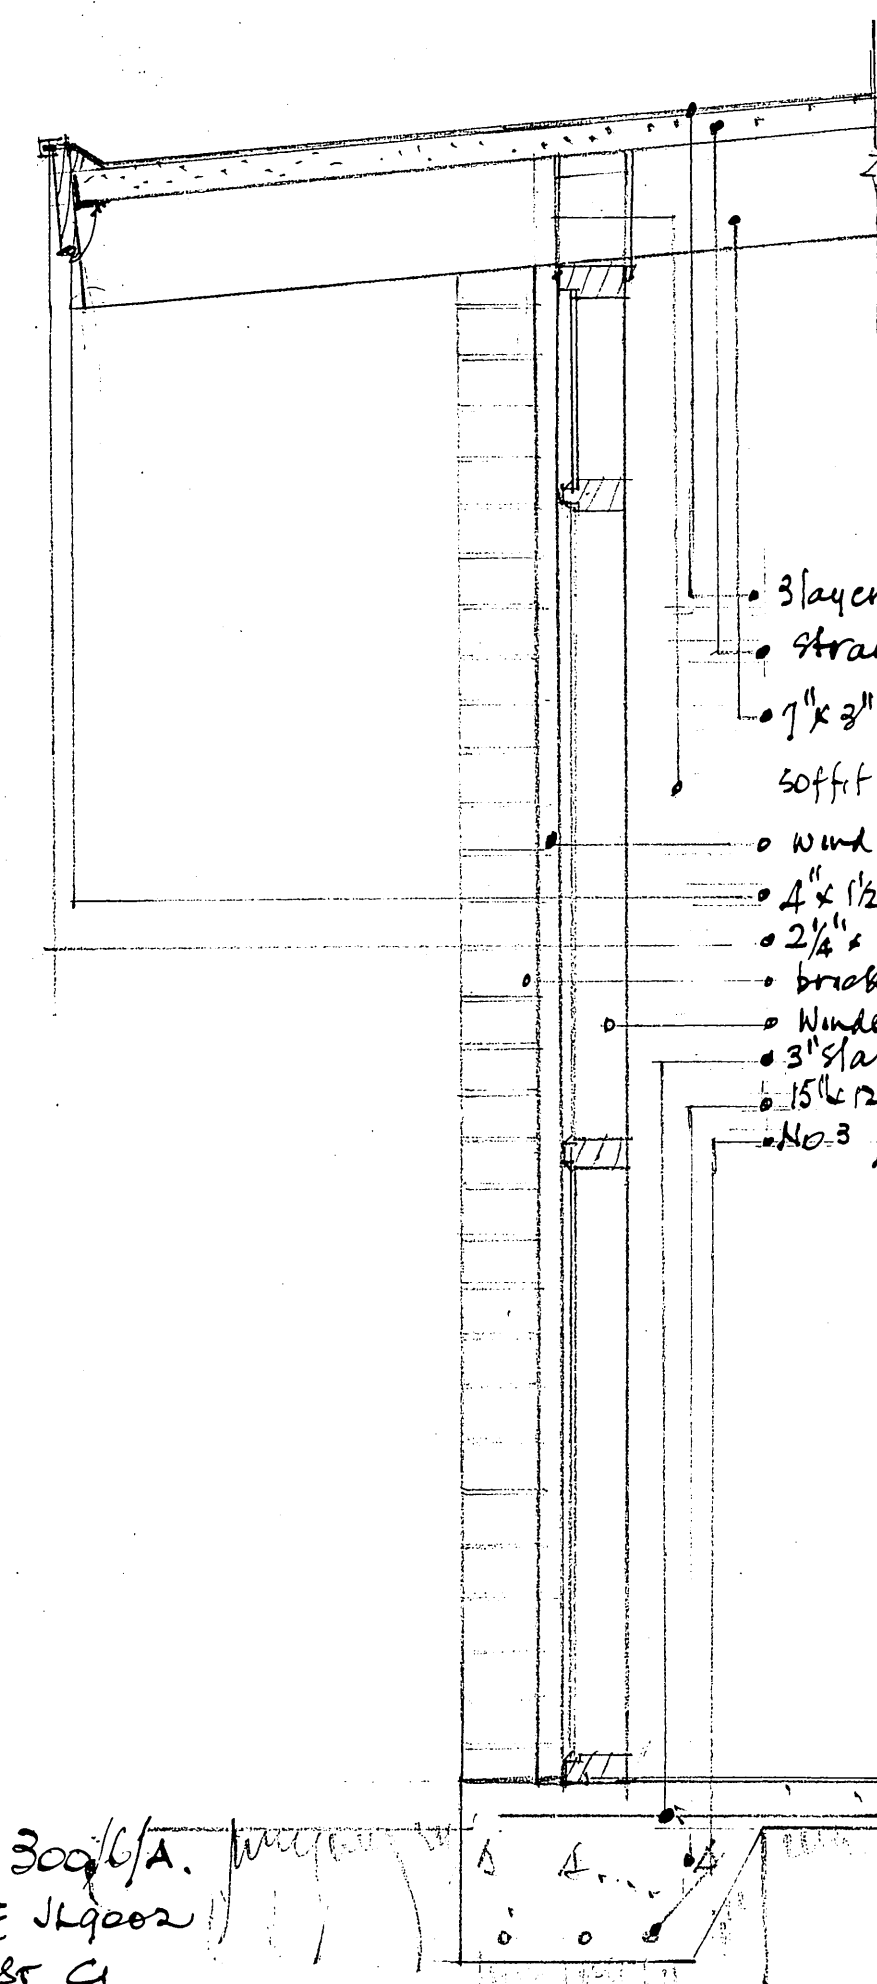 3 layer
straw
7" x 3"
soffit
wind
4" x 1½
2¼" x
brick
Windo
3" sla
15" x 12
No 3
300/6/A.
E JL9002
ST